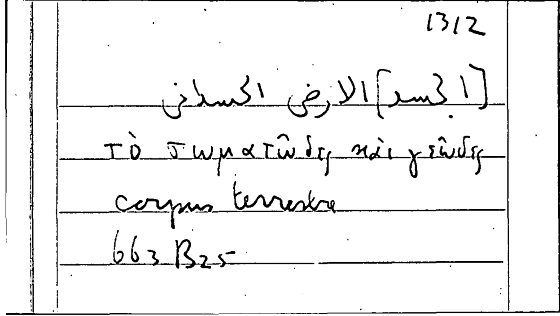 1312
[الجسد] الارضى
τὸ σωματῶδες καὶ γεῶδες
corpus terrestre
663 B25